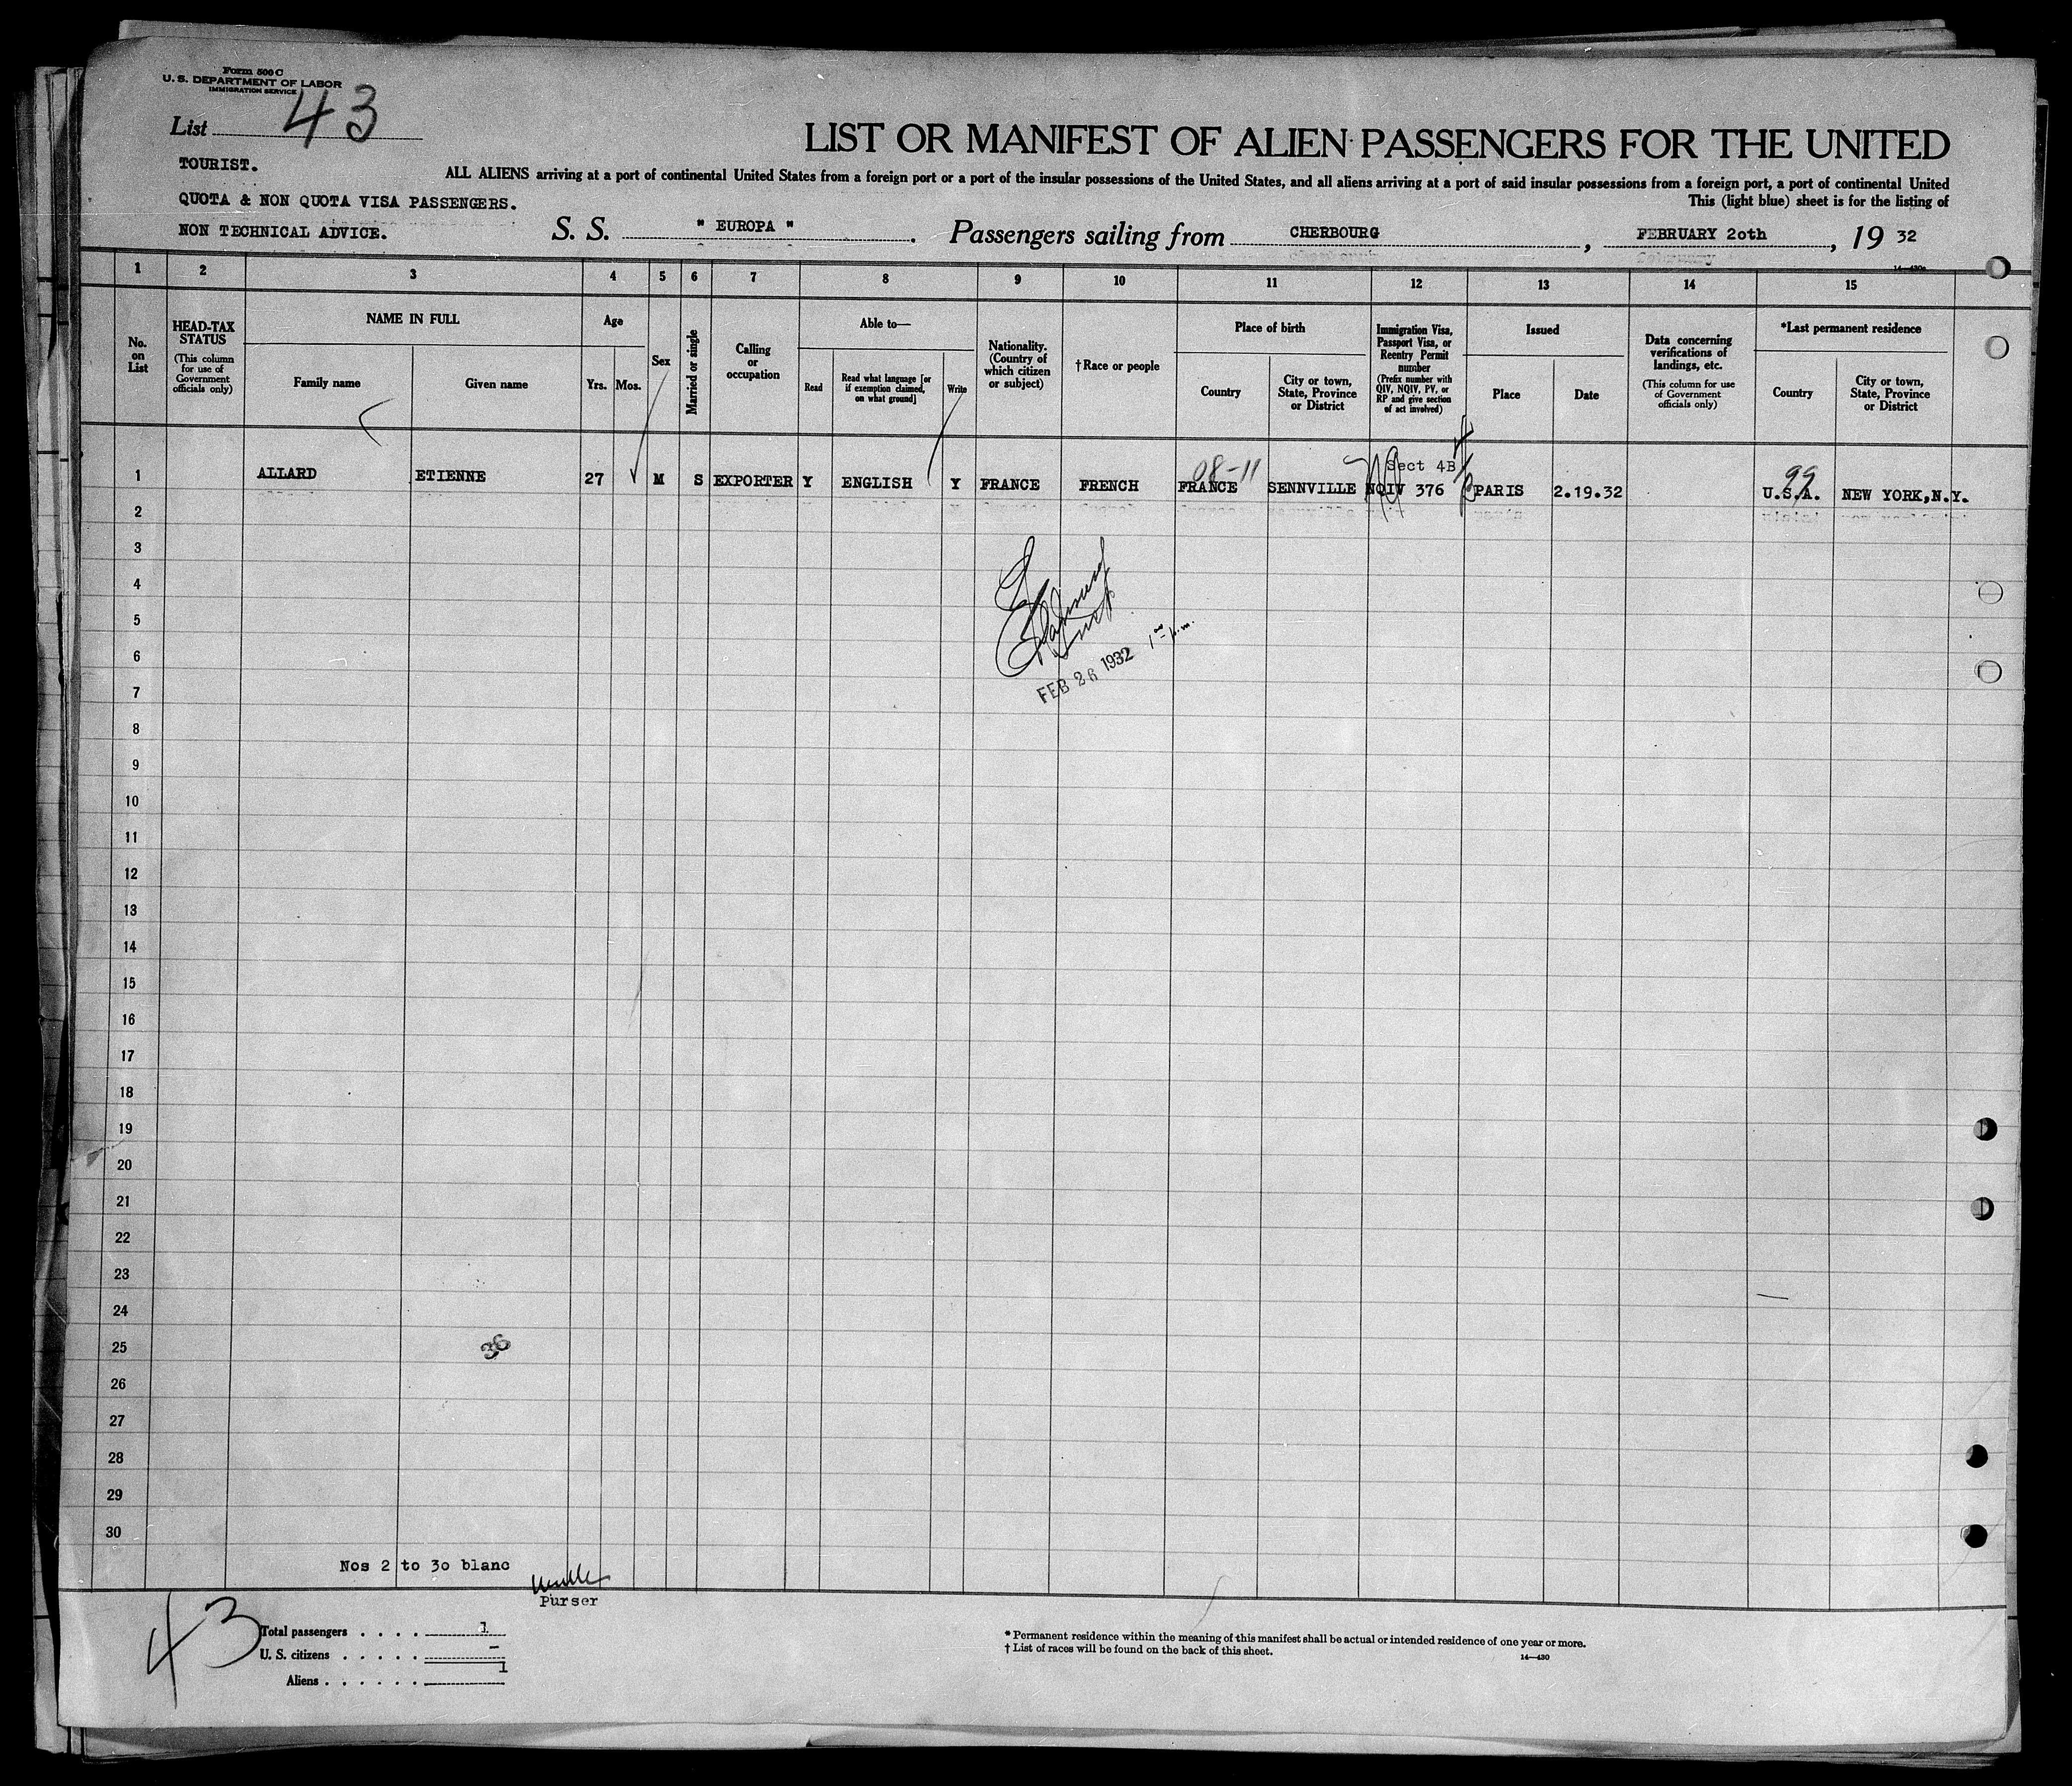 Form 500 C
U. S. DEPARTMENT OF LABOR
IMMIGRATION SERVICE
List 43
LIST OR MANIFEST OF ALIEN PASSENGERS FOR THE UNITED
TOURIST.
ALL ALIENS arriving at a port of continental United States from a foreign port or a port of the insular possessions of the United States, and all aliens arriving at a port of said insular possessions from a foreign port, a port of continental United
QUOTA & NON QUOTA VISA PASSENGERS.
This (light blue) sheet is for the listing of
NON TECHNICAL ADVICE.
S. S. " EUROPA " . Passengers sailing from CHERBOURG , FEBRUARY 2oth , 19 32
1 2 3 4 5 6 7 8 9 10 11 12 13 14 15
No. on List
HEAD-TAX STATUS
(This column for use of Government officials only)
NAME IN FULL
Family name
Given name
Age
Yrs.
Mos.
Sex
Married or single
Calling or occupation
Able to—
Read
Read what language [or if exemption claimed, on what ground]
Write
Nationality. (Country of which citizen or subject)
†Race or people
Place of birth
Country
City or town, State, Province or District
Immigration Visa, Passport Visa, or Reentry Permit number
(Prefix number with QIV, NQIV, PV, or RP and give section of act involved)
Issued
Place
Date
Data concerning verifications of landings, etc.
(This column for use of Government officials only)
*Last permanent residence
Country
City or town, State, Province or District
08-11 Sect 4B 99
1 ALLARD ETIENNE 27 M S EXPORTER Y ENGLISH Y FRANCE FRENCH FRANCE SENNVILLE NQIV 376 PARIS 2.19.32 U.S.A. NEW YORK,N.Y.
2
3
4
5
6
FEB 26 1932
7
8
9
10
11
12
13
14
15
16
17
18
19
20
21
22
23
24
25
36
26
27
28
29
30
Nos 2 to 3o blanc
Purser
43
Total passengers . . . . 1
U. S. citizens . . . . . –
Aliens . . . . . . 1
* Permanent residence within the meaning of this manifest shall be actual or intended residence of one year or more.
† List of races will be found on the back of this sheet.
14—430